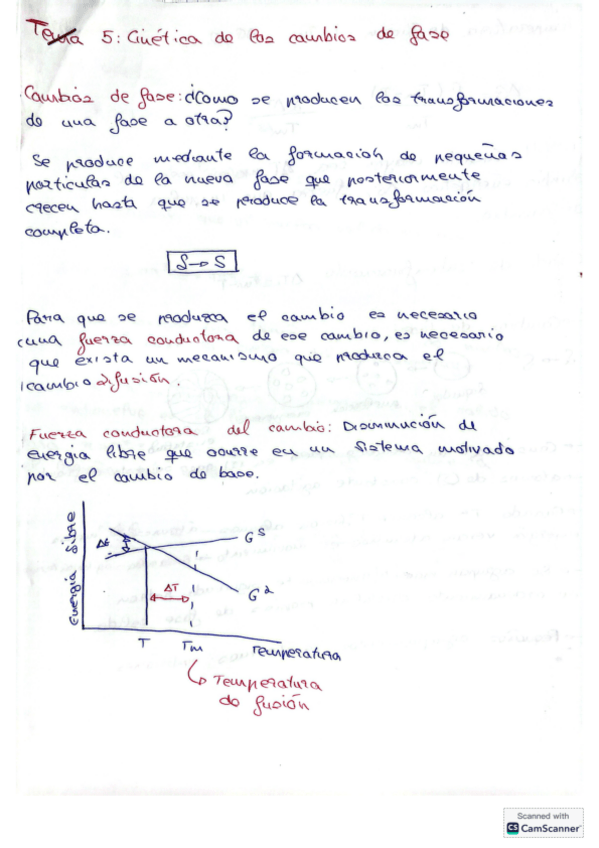 Tema 5: Cinética de los cambios de fase
Cambios de fase: ¿Como se producen las transformaciones
de una fase a otra?
Se produce mediante la formación de pequeñas
partículas de la nueva fase que posteriormente
crecen hasta que se produce la transformación
completa.
S → S
Para que se produzca el cambio es necesario
una fuerza conductora de ese cambio, es necesario
que exista un mecanismo que produzca el
cambio difusión.
Fuerza conductora del cambio: Disminución de
energía libre que ocurre en un sistema motivado
por el cambio de base.
energía libre
ΔG
G^S
ΔT
G^L
T
Tm
Temperatura
Temperatura
de fusión
Scanned with
CS CamScanner